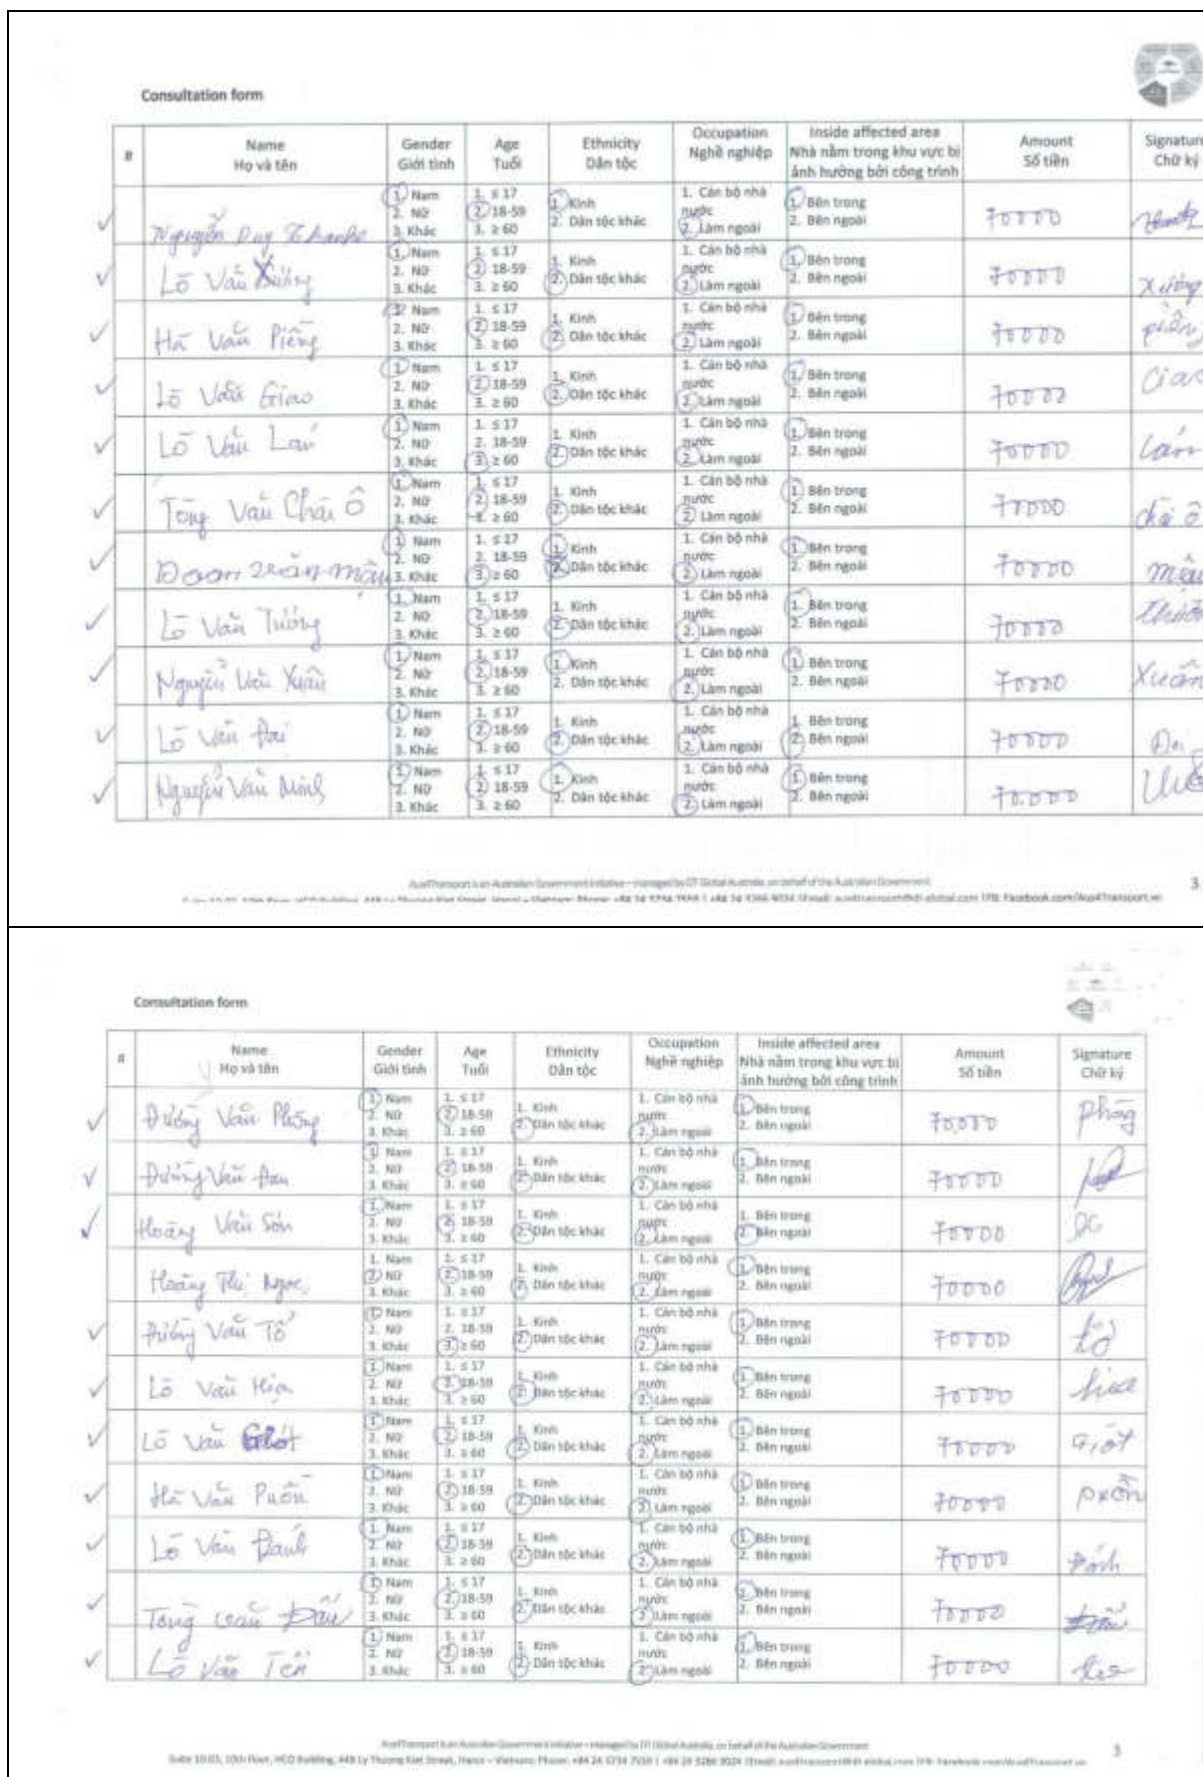 Consultation form
# Name Họ và tên Gender Giới tính Age Tuổi Ethnicity Dân tộc Occupation Nghề nghiệp Inside affected area Nhà nằm trong khu vực bị ảnh hưởng bởi công trình Amount Số tiền Signature Chữ ký
Nguyễn Duy Khanh 1. Nam 2. Nữ 3. Khác 1. ≤ 17 2. 18-59 3. ≥ 60 1. Kinh 2. Dân tộc khác 1. Cán bộ nhà nước 2. Làm ngoài 1. Bên trong 2. Bên ngoài 70000
Lò Văn Xướng 1. Nam 2. Nữ 3. Khác 1. ≤ 17 2. 18-59 3. ≥ 60 1. Kinh 2. Dân tộc khác 1. Cán bộ nhà nước 2. Làm ngoài 1. Bên trong 2. Bên ngoài 70000 Xướng
Hà Văn Piêng 1. Nam 2. Nữ 3. Khác 1. ≤ 17 2. 18-59 3. ≥ 60 1. Kinh 2. Dân tộc khác 1. Cán bộ nhà nước 2. Làm ngoài 1. Bên trong 2. Bên ngoài 70000
Lò Văn Giao 1. Nam 2. Nữ 3. Khác 1. ≤ 17 2. 18-59 3. ≥ 60 1. Kinh 2. Dân tộc khác 1. Cán bộ nhà nước 2. Làm ngoài 1. Bên trong 2. Bên ngoài 70000 Giao
Lò Văn Lán 1. Nam 2. Nữ 3. Khác 1. ≤ 17 2. 18-59 3. ≥ 60 1. Kinh 2. Dân tộc khác 1. Cán bộ nhà nước 2. Làm ngoài 1. Bên trong 2. Bên ngoài 70000 Lán
Tòng Văn Chài Ô 1. Nam 2. Nữ 3. Khác 1. ≤ 17 2. 18-59 3. ≥ 60 1. Kinh 2. Dân tộc khác 1. Cán bộ nhà nước 2. Làm ngoài 1. Bên trong 2. Bên ngoài 70000 chài ô
Đoàn Văn Mậu 1. Nam 2. Nữ 3. Khác 1. ≤ 17 2. 18-59 3. ≥ 60 1. Kinh 2. Dân tộc khác 1. Cán bộ nhà nước 2. Làm ngoài 1. Bên trong 2. Bên ngoài 70000 mậu
Lò Văn Tướng 1. Nam 2. Nữ 3. Khác 1. ≤ 17 2. 18-59 3. ≥ 60 1. Kinh 2. Dân tộc khác 1. Cán bộ nhà nước 2. Làm ngoài 1. Bên trong 2. Bên ngoài 70000
Nguyễn Văn Xuân 1. Nam 2. Nữ 3. Khác 1. ≤ 17 2. 18-59 3. ≥ 60 1. Kinh 2. Dân tộc khác 1. Cán bộ nhà nước 2. Làm ngoài 1. Bên trong 2. Bên ngoài 70000 Xuân
Lò Văn Đại 1. Nam 2. Nữ 3. Khác 1. ≤ 17 2. 18-59 3. ≥ 60 1. Kinh 2. Dân tộc khác 1. Cán bộ nhà nước 2. Làm ngoài 1. Bên trong 2. Bên ngoài 70000 Đại
Nguyễn Văn Minh 1. Nam 2. Nữ 3. Khác 1. ≤ 17 2. 18-59 3. ≥ 60 1. Kinh 2. Dân tộc khác 1. Cán bộ nhà nước 2. Làm ngoài 1. Bên trong 2. Bên ngoài 70.000
Aus4Transport is an Australian Government initiative – managed by DT Global Australia, on behalf of the Australian Government
3
Consultation form
# Name Họ và tên Gender Giới tính Age Tuổi Ethnicity Dân tộc Occupation Nghề nghiệp Inside affected area Nhà nằm trong khu vực bị ảnh hưởng bởi công trình Amount Số tiền Signature Chữ ký
Đường Văn Phóng 1. Nam 2. Nữ 3. Khác 1. ≤ 17 2. 18-59 3. ≥ 60 1. Kinh 2. Dân tộc khác 1. Cán bộ nhà nước 2. Làm ngoài 1. Bên trong 2. Bên ngoài 70,000 phóng
Đường Văn Đan 1. Nam 2. Nữ 3. Khác 1. ≤ 17 2. 18-59 3. ≥ 60 1. Kinh 2. Dân tộc khác 1. Cán bộ nhà nước 2. Làm ngoài 1. Bên trong 2. Bên ngoài 70000
Hoàng Văn Sơn 1. Nam 2. Nữ 3. Khác 1. ≤ 17 2. 18-59 3. ≥ 60 1. Kinh 2. Dân tộc khác 1. Cán bộ nhà nước 2. Làm ngoài 1. Bên trong 2. Bên ngoài 70000
Hoàng Thị Ngọc 1. Nam 2. Nữ 3. Khác 1. ≤ 17 2. 18-59 3. ≥ 60 1. Kinh 2. Dân tộc khác 1. Cán bộ nhà nước 2. Làm ngoài 1. Bên trong 2. Bên ngoài 70000
Đường Văn Tở 1. Nam 2. Nữ 3. Khác 1. ≤ 17 2. 18-59 3. ≥ 60 1. Kinh 2. Dân tộc khác 1. Cán bộ nhà nước 2. Làm ngoài 1. Bên trong 2. Bên ngoài 70000 tở
Lò Văn Hịa 1. Nam 2. Nữ 3. Khác 1. ≤ 17 2. 18-59 3. ≥ 60 1. Kinh 2. Dân tộc khác 1. Cán bộ nhà nước 2. Làm ngoài 1. Bên trong 2. Bên ngoài 70000
Lò Văn Giót 1. Nam 2. Nữ 3. Khác 1. ≤ 17 2. 18-59 3. ≥ 60 1. Kinh 2. Dân tộc khác 1. Cán bộ nhà nước 2. Làm ngoài 1. Bên trong 2. Bên ngoài 70000 Giót
Hà Văn Puồn 1. Nam 2. Nữ 3. Khác 1. ≤ 17 2. 18-59 3. ≥ 60 1. Kinh 2. Dân tộc khác 1. Cán bộ nhà nước 2. Làm ngoài 1. Bên trong 2. Bên ngoài 70000 puồn
Lò Văn Đánh 1. Nam 2. Nữ 3. Khác 1. ≤ 17 2. 18-59 3. ≥ 60 1. Kinh 2. Dân tộc khác 1. Cán bộ nhà nước 2. Làm ngoài 1. Bên trong 2. Bên ngoài 70000 Đánh
Tòng Văn Đấu 1. Nam 2. Nữ 3. Khác 1. ≤ 17 2. 18-59 3. ≥ 60 1. Kinh 2. Dân tộc khác 1. Cán bộ nhà nước 2. Làm ngoài 1. Bên trong 2. Bên ngoài 70000 Đấu
Lò Văn Tến 1. Nam 2. Nữ 3. Khác 1. ≤ 17 2. 18-59 3. ≥ 60 1. Kinh 2. Dân tộc khác 1. Cán bộ nhà nước 2. Làm ngoài 1. Bên trong 2. Bên ngoài 70000
Aus4Transport is an Australian Government initiative – managed by DT Global Australia, on behalf of the Australian Government
3